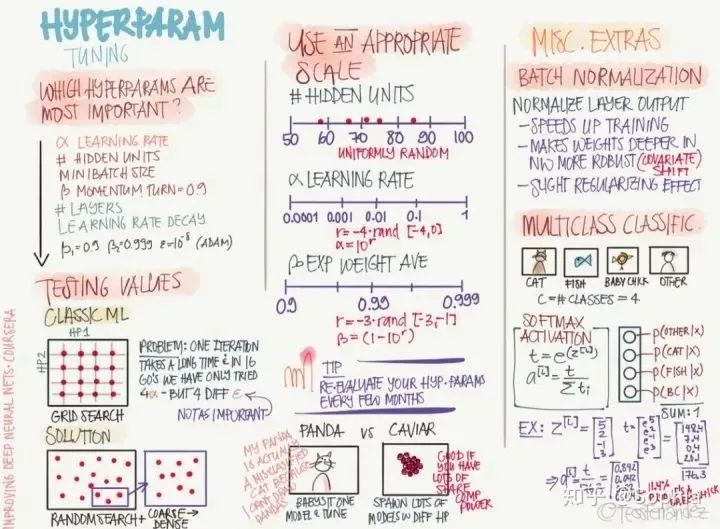 HYPERPARAM
TUNING
WHICH HYPERPARAMS ARE
MOST IMPORTANT?
α LEARNING RATE
# HIDDEN UNITS
MINIBATCH SIZE
β MOMENTUM TURN = 0.9
# LAYERS
LEARNING RATE DECAY
β₁=0.9 β₂=0.999 ε=10⁻⁸ (ADAM)
TESTING VALUES
CLASSIC ML
HP1
HP2
GRID SEARCH
PROBLEM: ONE ITERATION
TAKES A LONG TIME & IN 16
GO'S WE HAVE ONLY TRIED
4α - BUT 4 DIFF ε
NOT AS IMPORTANT
SOLUTION
RANDOM SEARCH + COARSE → DENSE
IMPROVING DEEP NEURAL NETS · COURSERA
USE AN APPROPRIATE
SCALE
# HIDDEN UNITS
50 60 70 80 90 100
UNIFORMLY RANDOM
α LEARNING RATE
0.0001 0.001 0.01 0.1 1
r=-4·rand [-4,0]
α=10ʳ
β EXP WEIGHT AVE
0.9 0.99 0.999
r=-3·rand [-3,-1]
β=(1-10ʳ)
TIP
RE-EVALUATE YOUR HYP. PARAMS
EVERY FEW MONTHS
PANDA VS CAVIAR
MY PANDA
IS ACTUALLY
A MISCLASSIFIED
CAT BECAUSE
I CAN'T DRAW
PANDAS
BABYSIT ONE
MODEL & TUNE
SPAWN LOTS OF
MODELS W DIFF HP
GOOD IF
YOU HAVE
LOTS OF
SHARE
COMP
POWER
MISC. EXTRAS
BATCH NORMALIZATION
NORMALIZE LAYER OUTPUT
- SPEEDS UP TRAINING
- MAKES WEIGHTS DEEPER IN
NW MORE ROBUST (COVARIATE)
SHIFT
- SLIGHT REGULARIZING EFFECT
MULTICLASS CLASSIFIC.
CAT FISH BABY CHICK OTHER
C = # CLASSES = 4
SOFTMAX
ACTIVATION
t = e^(z^[L])
a^[L] = t / Σ tᵢ
P(OTHER|X)
P(CAT|X)
P(FISH|X)
P(BC|X)
SUM: 1
EX: Z^[L] = [5 2 -1 3] t = [e⁵ e² e⁻¹ e³] = [148.4 7.4 0.4 20.1]
176.3
0.842
0.042
知乎